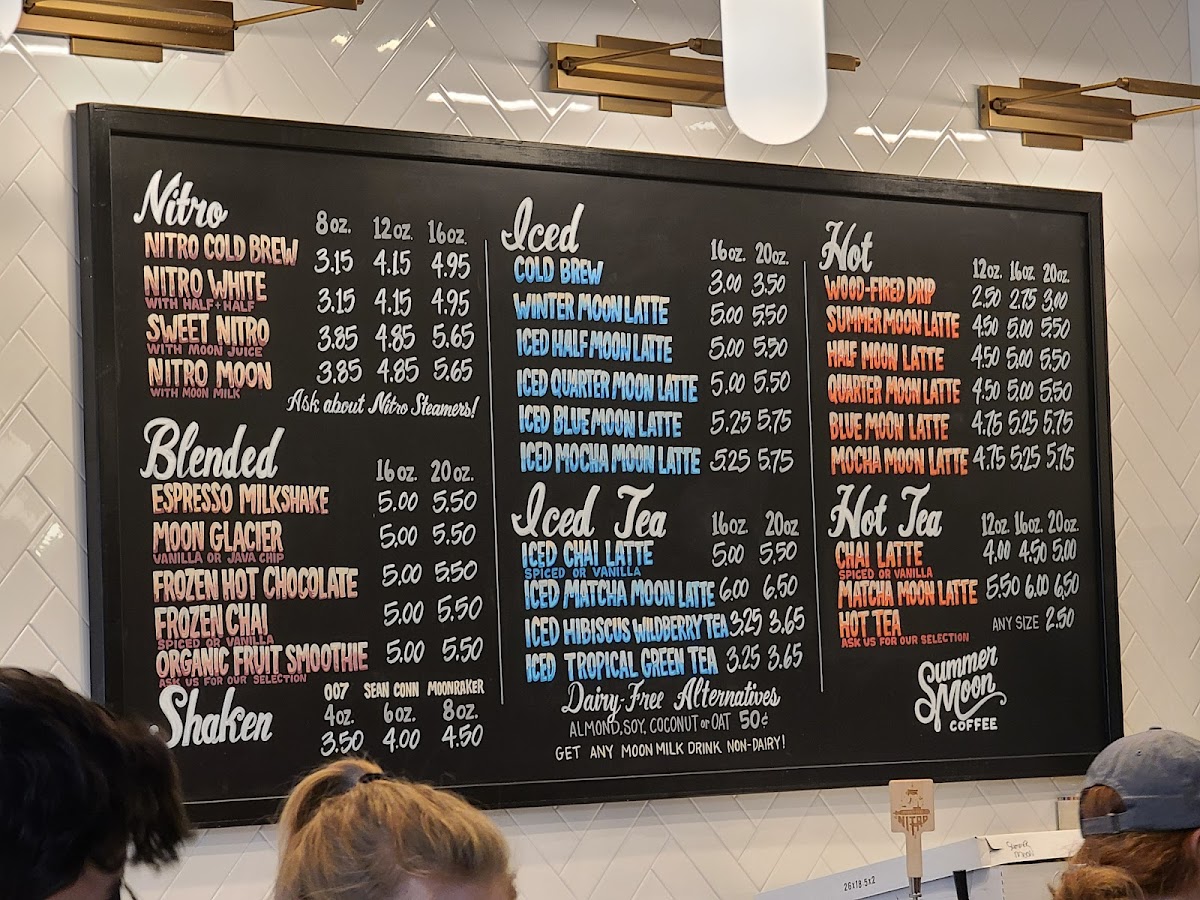 Nitro 8oz. 12oz. 16oz.
NITRO COLD BREW 3.15 4.15 4.95
NITRO WHITE 3.15 4.15 4.95
WITH HALF+HALF
SWEET NITRO 3.85 4.85 5.65
WITH MOON JUICE
NITRO MOON 3.85 4.85 5.65
WITH MOON MILK
Ask about Nitro Steamers!
Blended 16oz. 20oz.
ESPRESSO MILKSHAKE 5.00 5.50
MOON GLACIER 5.00 5.50
VANILLA OR JAVA CHIP
FROZEN HOT CHOCOLATE 5.00 5.50
FROZEN CHAI 5.00 5.50
SPICED OR VANILLA
ORGANIC FRUIT SMOOTHIE 5.00 5.50
ASK US FOR OUR SELECTION
007 SEAN CONN MOONRAKER
Shaken 4oz. 6oz. 8oz.
3.50 4.00 4.50
Iced 16oz. 20oz.
COLD BREW 3.00 3.50
WINTER MOON LATTE 5.00 5.50
ICED HALF MOON LATTE 5.00 5.50
ICED QUARTER MOON LATTE 5.00 5.50
ICED BLUE MOON LATTE 5.25 5.75
ICED MOCHA MOON LATTE 5.25 5.75
Iced Tea 16oz. 20oz
ICED CHAI LATTE 5.00 5.50
SPICED OR VANILLA
ICED MATCHA MOON LATTE 6.00 6.50
ICED HIBISCUS WILDBERRY TEA 3.25 3.65
ICED TROPICAL GREEN TEA 3.25 3.65
Dairy-Free Alternatives
ALMOND, SOY, COCONUT or OAT 50¢
GET ANY MOON MILK DRINK NON-DAIRY!
Hot 12oz. 16oz. 20oz.
WOOD-FIRED DRIP 2.50 2.75 3.00
SUMMER MOON LATTE 4.50 5.00 5.50
HALF MOON LATTE 4.50 5.00 5.50
QUARTER MOON LATTE 4.50 5.00 5.50
BLUE MOON LATTE 4.75 5.25 5.75
MOCHA MOON LATTE 4.75 5.25 5.75
Hot Tea 12oz. 16oz. 20oz.
CHAI LATTE 4.00 4.50 5.00
SPICED OR VANILLA
MATCHA MOON LATTE 5.50 6.00 6.50
HOT TEA ANY SIZE 2.50
ASK US FOR OUR SELECTION
Summer
Moon
COFFEE
NITRO
Summer
Moon
26x18.5x2